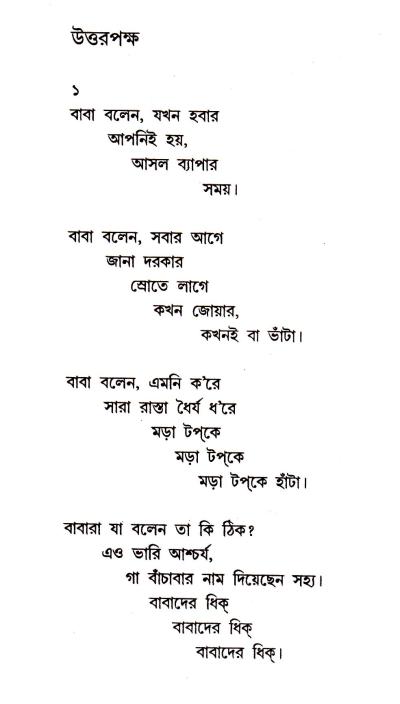 উত্তরপক্ষ
১
বাবা বলেন, যখন হবার
আপনিই হয়,
আসল ব্যাপার
সময়।
বাবা বলেন, সবার আগে
জানা দরকার
স্রোতে লাগে
কখন জোয়ার,
কখনই বা ভাঁটা।
বাবা বলেন, এমনি ক'রে
সারা রাস্তা ধৈর্য ধ'রে
মড়া টপ্‌কে
মড়া টপ্‌কে
মড়া টপ্‌কে হাঁটা।
বাবারা যা বলেন তা কি ঠিক?
এও ভারি আশ্চর্য,
গা বাঁচাবার নাম দিয়েছেন সহ্য।
বাবাদের ধিক্
বাবাদের ধিক্
বাবাদের ধিক্।